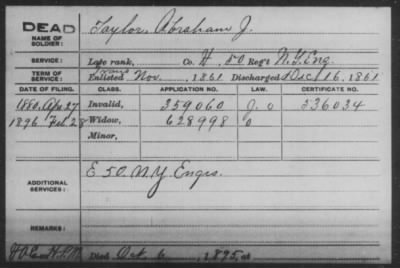 DEAD
NAME OF SOLDIER:
Taylor, Abraham J.
SERVICE:
Late rank, Co. H, 50 Reg't N.Y. Eng.
TERM OF SERVICE:
Enlisted Nov. , 1861 Discharged Dec 16, 1861
DATE OF FILING. CLASS. APPLICATION NO. LAW. CERTIFICATE NO.
1880, Apr 27 Invalid, 359060 J. O 336034
1896 Feb 28 Widow, 628998 O
Minor,
ADDITIONAL SERVICES:
E 50. N.Y Engrs.
REMARKS:
Died Oct. 6 , 1895, at